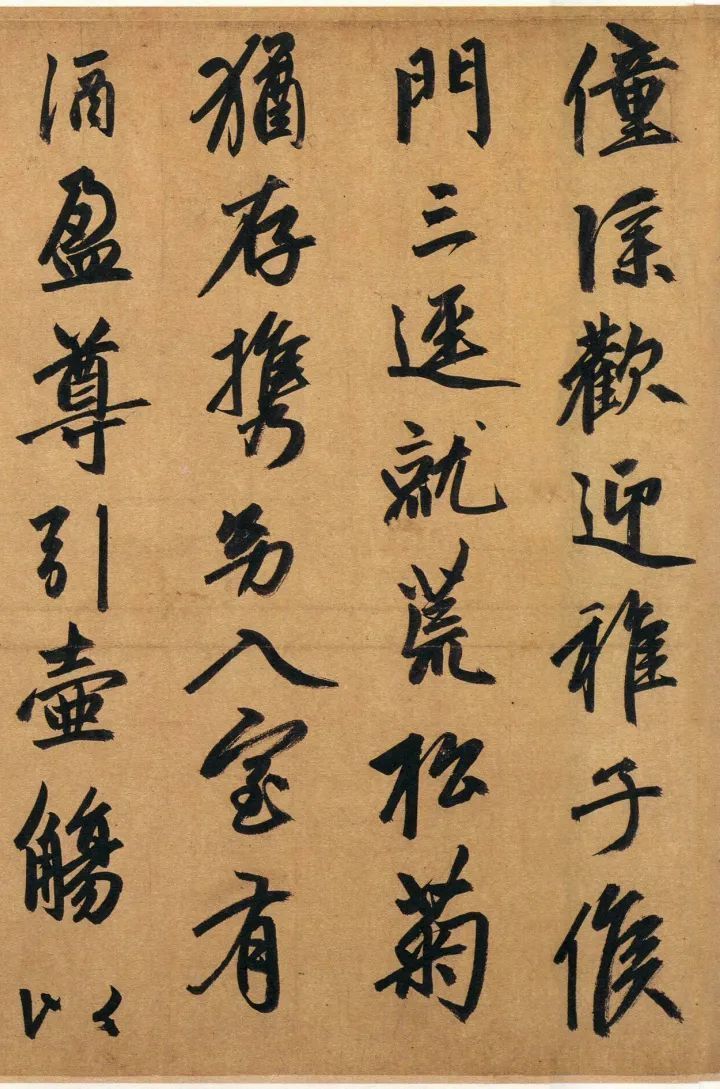 僮僕歡迎稚子候
門三逕就荒松菊
猶存攜幼入室有
酒盈尊引壺觴以